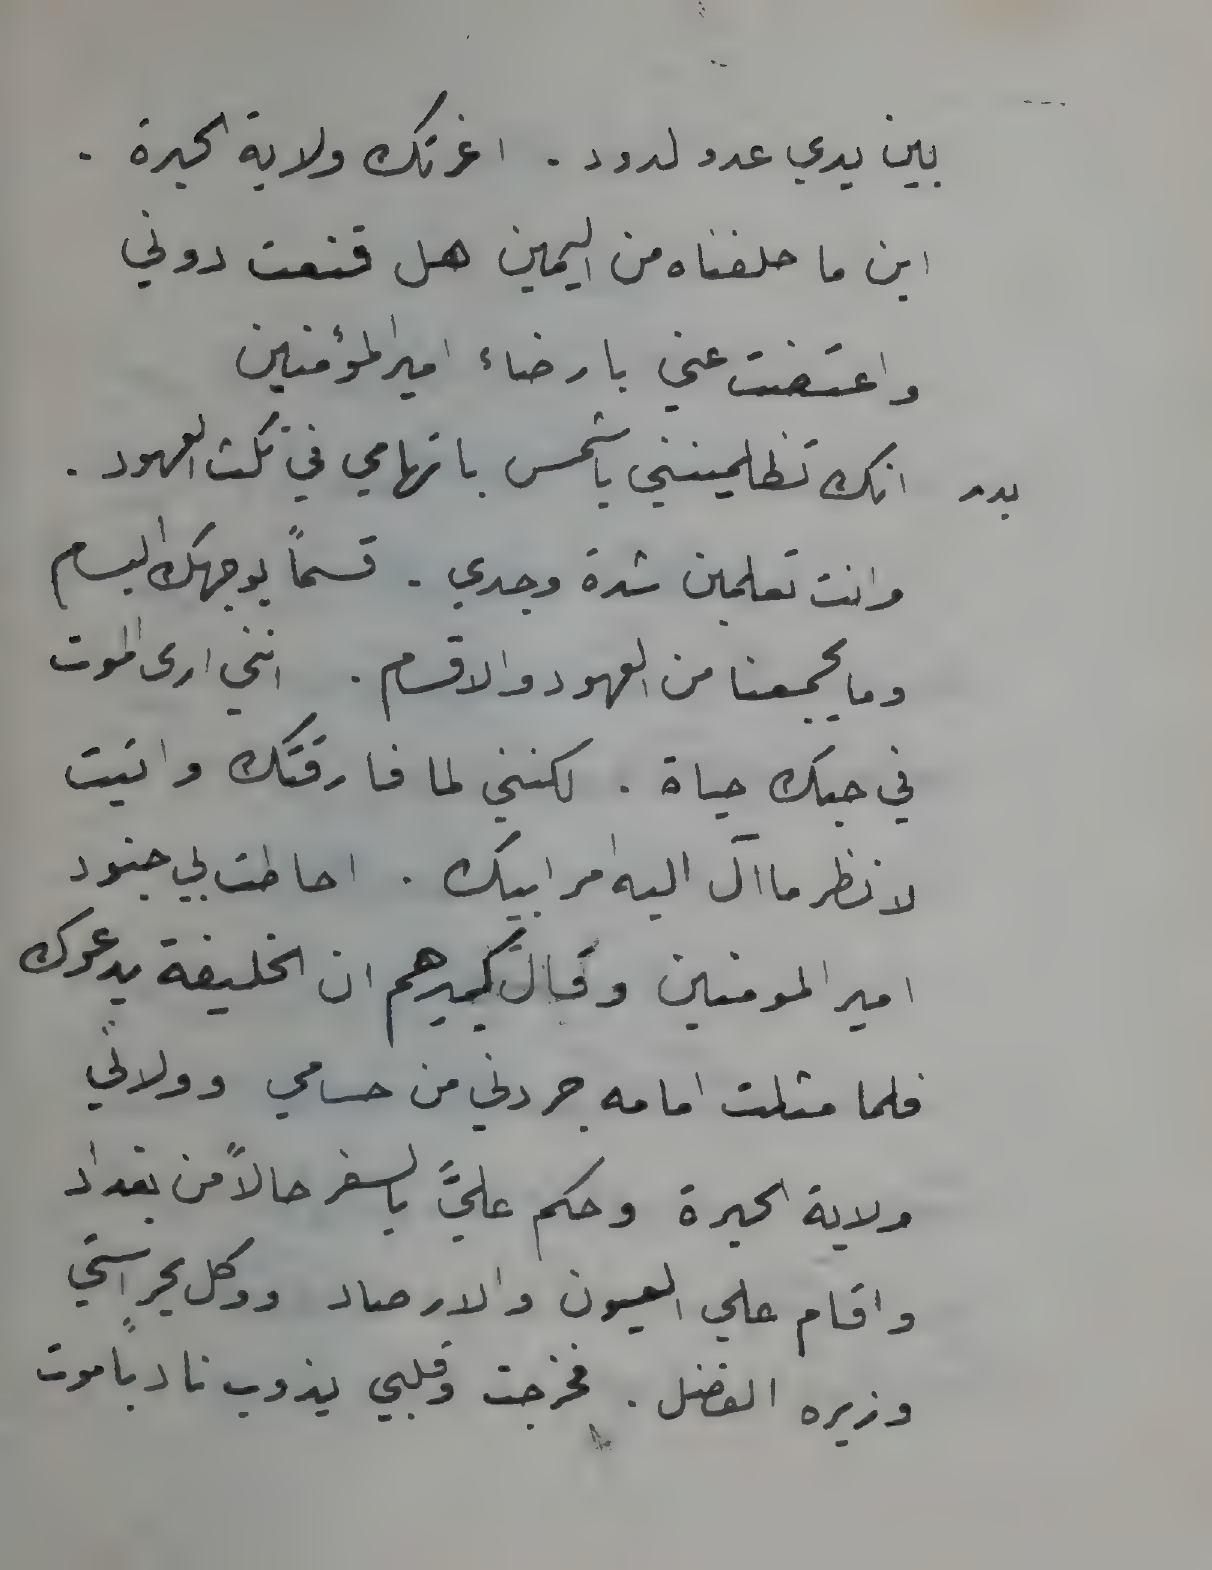 بين يدي عدو لدود . اغرتك ولاية الحيرة .
اين ما حلفناه من اليمين هل قنعت دوني
واعتضت عني بارضاء امير المؤمنين
بدر انك تظلمينني ياشمس باتهامي في نكث العهود .
وانت تعلمين شدة وجدي . قسماً بوجهك البسام
وما يجمعنا من العهود والاقسام . انني ارى الموت
في حبك حياة . لكنني لما فارقتك واتيت
لانظر ما آل اليه امر ابيك . احاطت بي جنود
امير المومنين وقال كبيرهم ان الخليفة يدعوك
فلما مثلت امامه جردني من حسامي وولاني
ولاية الحيرة وحكم عليَّ بالسفر حالاً من بغداد
واقام علي العيون والارصاد ووكل بحراستي
وزيره الفضل . فخرجت وقلبي يذوب نادباً موت